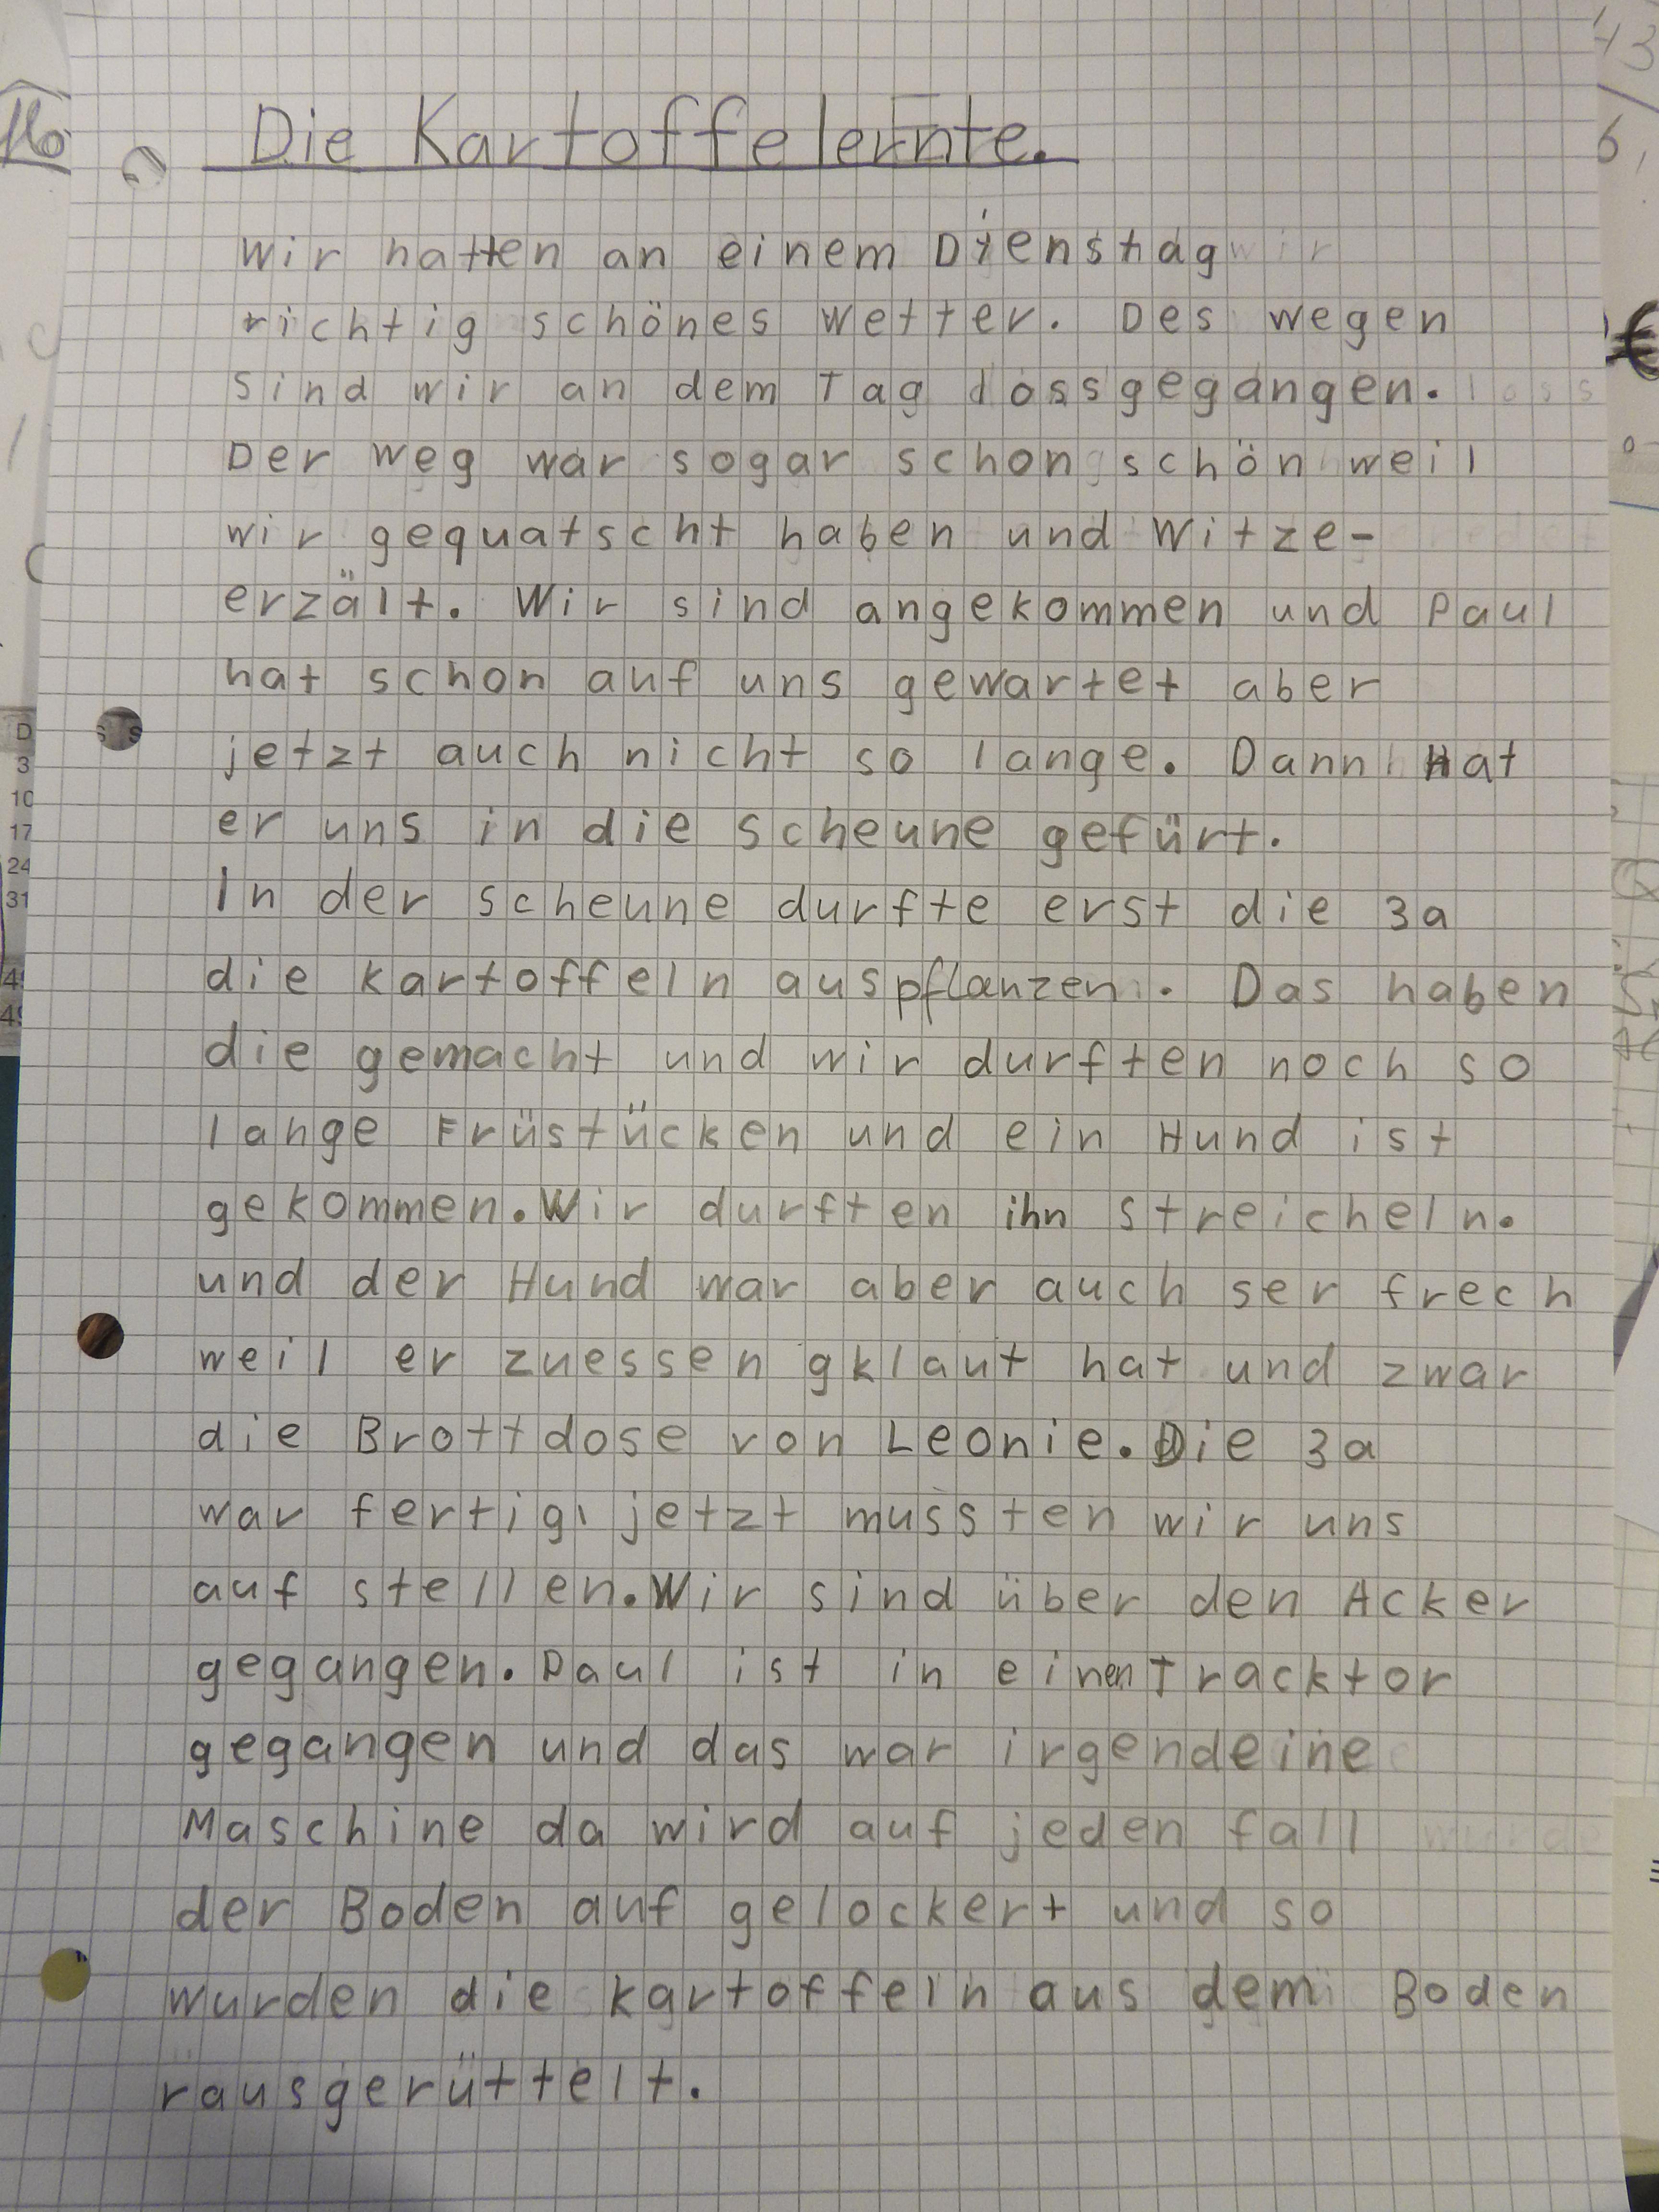 Die Kartoffelernte.
Wir hatten an einem Dienstag
richtig schönes Wetter. Des wegen
sind wir an dem Tag lossgegangen.
Der weg war sogar schon schön weil
wir gequatscht haben und Witze-
erzält. Wir sind angekommen und Paul
hat schon auf uns gewartet aber
jetzt auch nicht so lange. Dann Hat
er uns in die scheune gefürt.
In der scheune durfte erst die 3a
die kartoffeln auspflanzen. Das haben
die gemacht und wir durften noch so
lange Früstücken und ein Hund ist
gekommen. Wir durften ihn streicheln.
und der Hund war aber auch ser frech
weil er zuessen gklaut hat und zwar
die Brottdose von Leonie. Die 3a
war fertig, jetzt mussten wir uns
auf stellen. Wir sind über den Acker
gegangen. Paul ist in einen Tracktor
gegangen und das war irgendeine
Maschine da wird auf jeden fall
der Boden auf gelockert und so
wurden die kartoffeln aus dem Boden
rausgerüttelt.